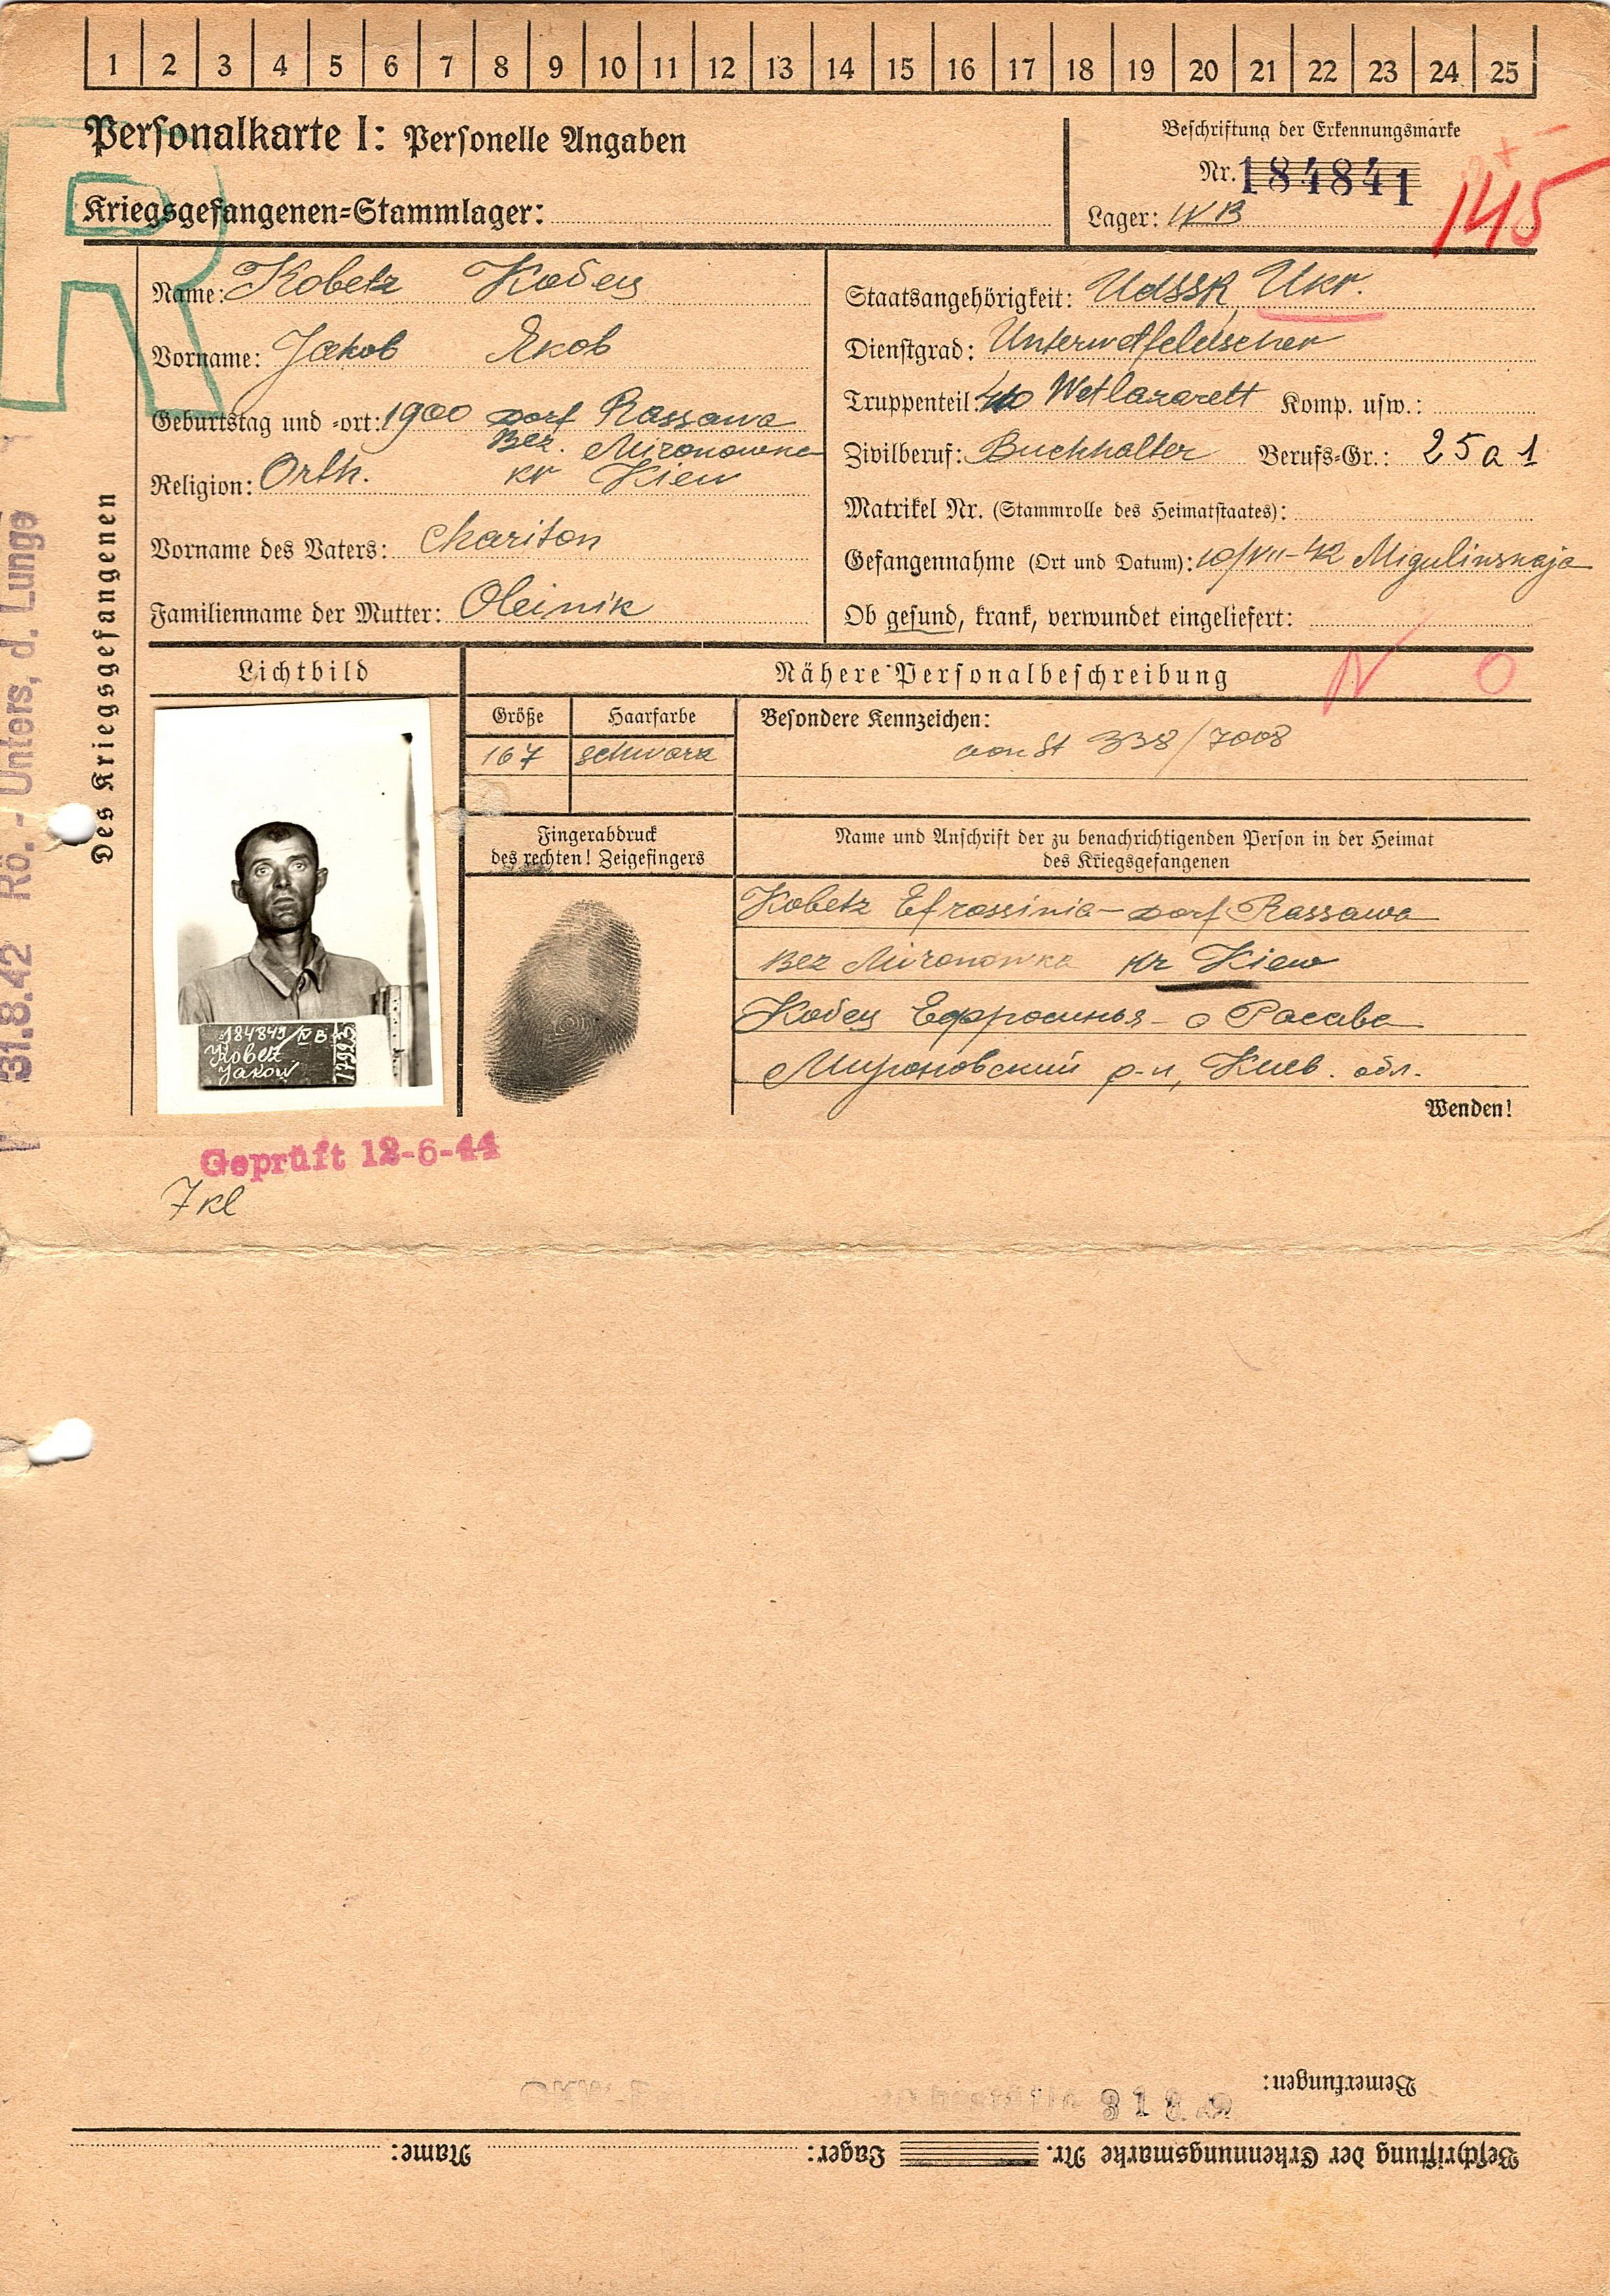 1 2 3 4 5 6 7 8 9 10 11 12 13 14 15 16 17 18 19 20 21 22 23 24 25
Personalkarte I: Personelle Angaben
Kriegsgefangenen=Stammlager:
Beschriftung der Erkennungsmarke
Nr. 184841
Lager: IVB
145
Des Kriegsgefangenen
31.8.42 Rö.- Unters, d. Lunge
Name: Kobetz Кобец
Vorname: Jakob Яков
Geburtstag und =ort: 1900 Dorf Rassawa
Bez. Mironowka
Religion: Orth. kr Kiew
Vorname des Vaters: Chariton
Familienname der Mutter: Oleinik
Staatsangehörigkeit: UdSSR, Ukr.
Dienstgrad: Unterwetfeldscher
Truppenteil: Wetlazarett Komp. usw.:
Zivilberuf: Buchhalter Berufs=Gr.: 25 a 1
Matrikel Nr. (Stammrolle des Heimatstaates):
Gefangennahme (Ort und Datum): 10/VII-42 Migulinskaja
Ob gesund, krank, verwundet eingeliefert:
Lichtbild
Nähere Personalbeschreibung
Größe Haarfarbe
167 schwarz
Besondere Kennzeichen:
von St 338/7008
Fingerabdruck
des rechten! Zeigefingers
Name und Anschrift der zu benachrichtigenden Person in der Heimat
des Kriegsgefangenen
Kobetz Efrossinia - Dorf Rassawa
Bez Mironowka kr Kiew
Кобец Ефросинья - с Расава
Мироновский р-н, Киев. обл.
Wenden!
184841/IV B
Kobetz
Jakow
Geprüft 12-6-44
7 kl
Bemerkungen:
Beschriftung der Erkennungsmarke Nr. Lager: Name: